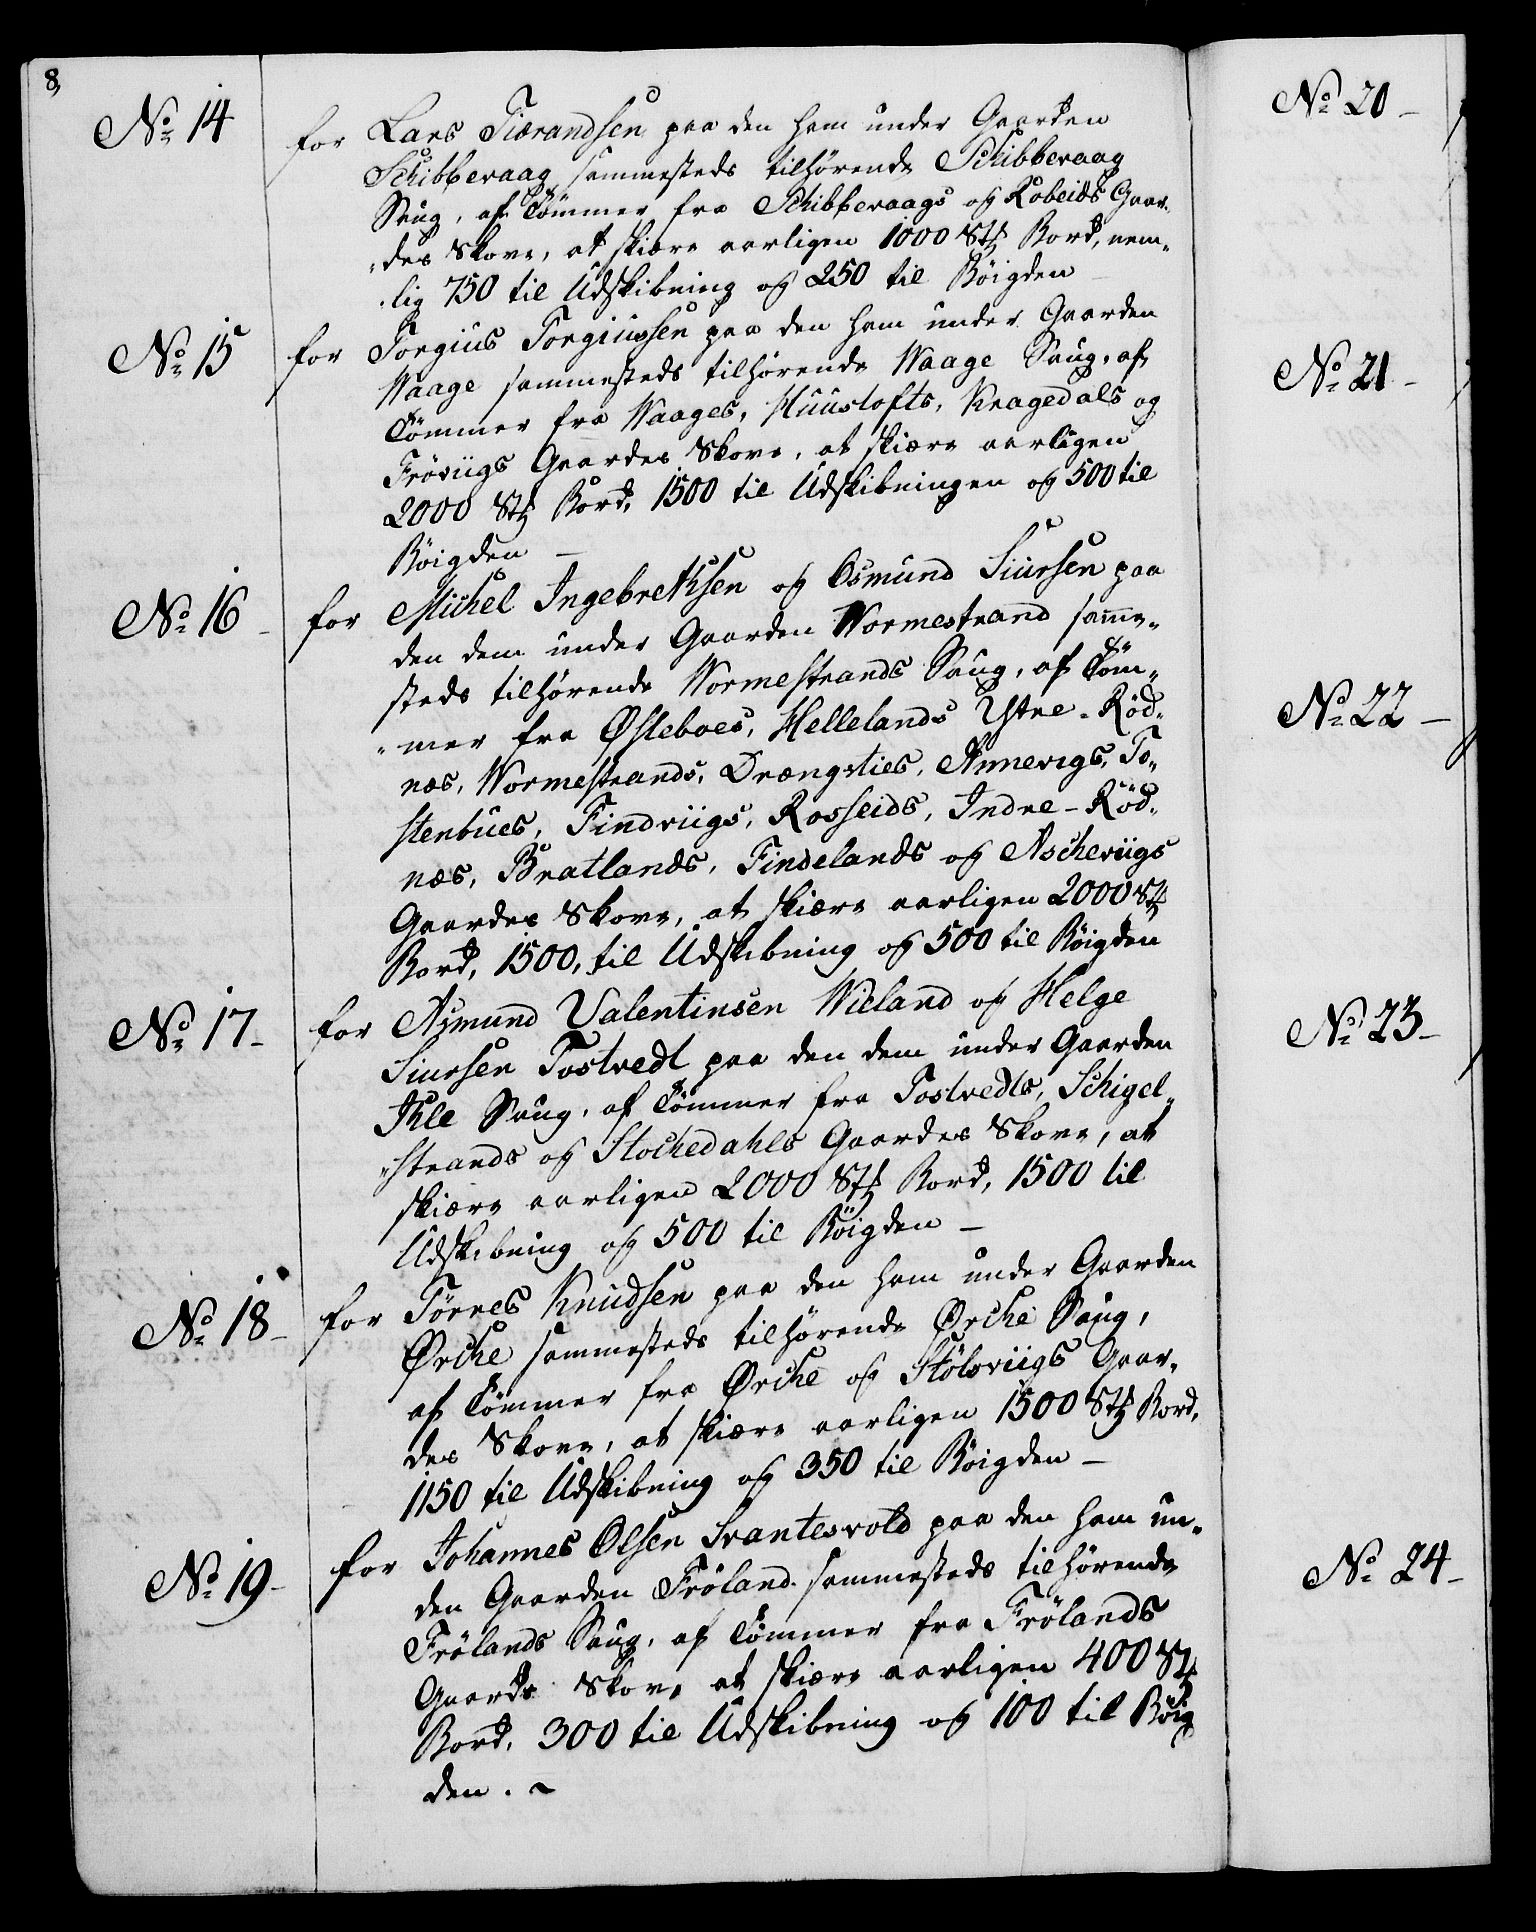 8,
No 14
for Lars Tiærandsen paa den ham under Gaarden
Schibbevaag sammesteds tilhørende Schibbevaag
Saug, af Tömmer fra Schibbevaags og Robeids Gaar„
„des Skove, at skiære aarligen 1000 Stk Bord, nem„
„lig 750 til Udskibning og 250 til Böigden
No 15
for Torgius Torgiussen paa den ham under Gaarden
Waage sammesteds tilhörende Waage Saug, af
Tömmer fra Waages, Huuslofts, Kragedals og
Fröviigs Gaardes Skove, at skiære aarligen
2000 Stk Bord, 1500 til Udskibningen og 500 til
Böigden –
No 16 –
for Michel Ingebrethsen og Osmund Siursen paa
den dem under Gaarden Wormestrand samme„
steds tilhørende Wormestrands Saug, af Töm„
„mer fra Øsleboes, Hellelands Ytre-Röd„
næs, Wormestrands, Drængsties, Annevigs, To„
stenbues, Findviigs, Rosseids, Indre-Röd„
næs, Bratlands, Findelands og Ascheviigs
Gaardes Skove, at skiære aarligen 2000 Stk
Bord, 1500, til Udskibning og 500 til Böigden
No 17 –
for Asmund Valentinsen Wieland og Helge
Siursen Tostvedt paa den dem under Gaarden
Ihle Saug, af Tömmer fra Tostvedts, Schigel„
„strands og Stochedahls Gaardes Skove, at
skiære aarligen 2000 Stk Bord, 1500 til
Udskibning og 500 til Böigden –
No 18 –
for Törres Knudsen paa den ham under Gaarden
Ørche sammesteds tilhörende Ørche Saug,
af Tömmer fra Ørche og Stölsviigs Gaar„
des Skove, at skiære aarligen 1500 Stk Bord,
1150 til Udskibning og 350 til Böigden –
No 19 –
for Johannes Olsen Svantesvold paa den ham un„
den Gaarden Fröland sammesteds tilhörende
Frölands Saug, af Tömmer fra Frölands
Gaards Skov, at skiære aarligen 400 Stk
Bord, 300 til Udskibning og 100 til Böig
den. ~
No 20 –
No 21 –
No 22 –
No 23 –
No 24 –